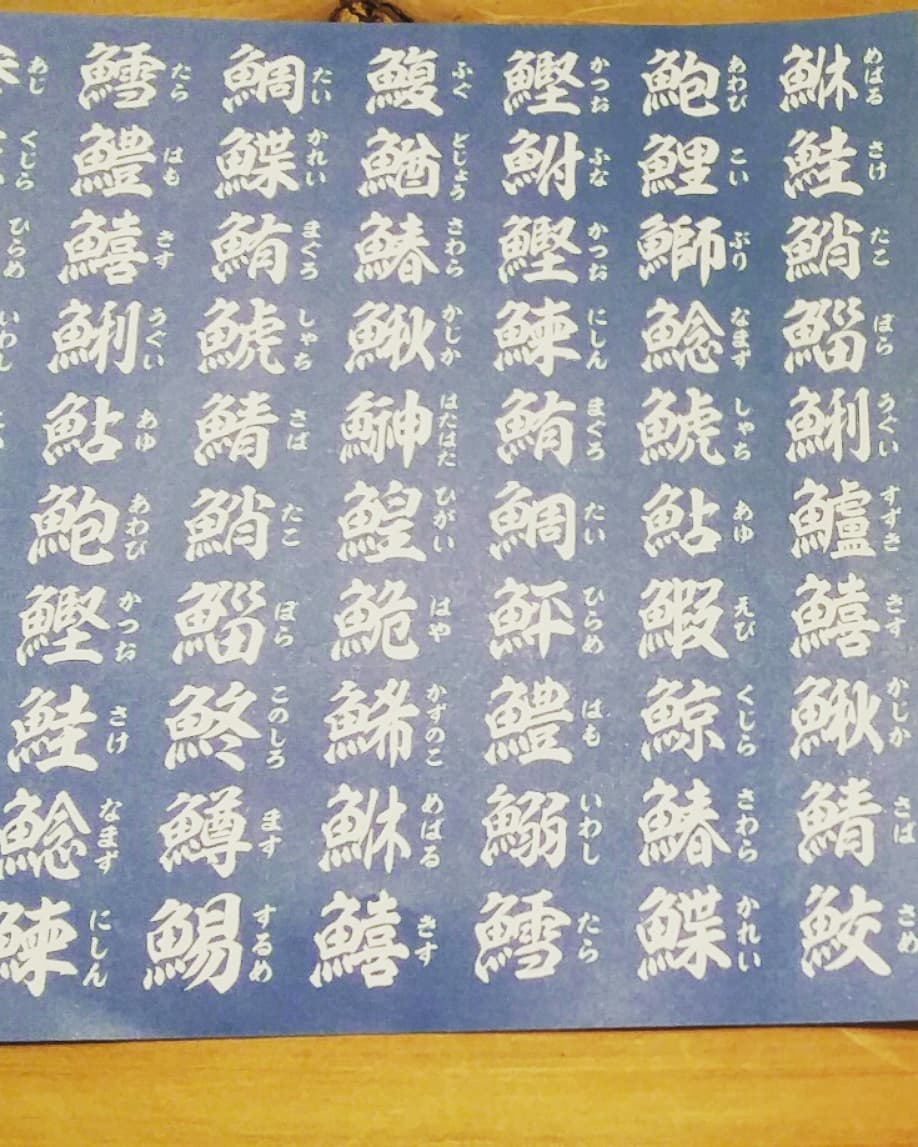 鮴 めばる 鮭 さけ 鮹 たこ 鯔 ぼら 鯏 うぐい 鱸 すずき 鱚 きす 鰍 かじか 鯖 さば 鮫 さめ
鮑 あわび 鯉 こい 鰤 ぶり 鯰 なまず 鯱 しゃち 鮎 あゆ 鰕 えび 鯨 くじら 鰆 さわら 鰈 かれい
鰹 かつお 鮒 ふな 鰹 かつお 鰊 にしん 鮪 まぐろ 鯛 たい 鮃 ひらめ 鱧 はも 鰯 いわし 鱈 たら
鰒 ふぐ 鰌 どじょう 鰆 さわら 鰍 かじか 鰰 はたはた 鰉 ひがい 鮠 はや 鯑 かずのこ 鮴 めばる 鱚 きす
鯛 たい 鰈 かれい 鮪 まぐろ 鯱 しゃち 鯖 さば 鮹 たこ 鯔 ぼら 鮗 このしろ 鱒 ます 鯣 するめ
鱈 たら 鱧 はも 鱚 きす 鯏 うぐい 鮎 あゆ 鮑 あわび 鰹 かつお 鮭 さけ 鯰 なまず 鰊 にしん
あじ くじら ひらめ いわし